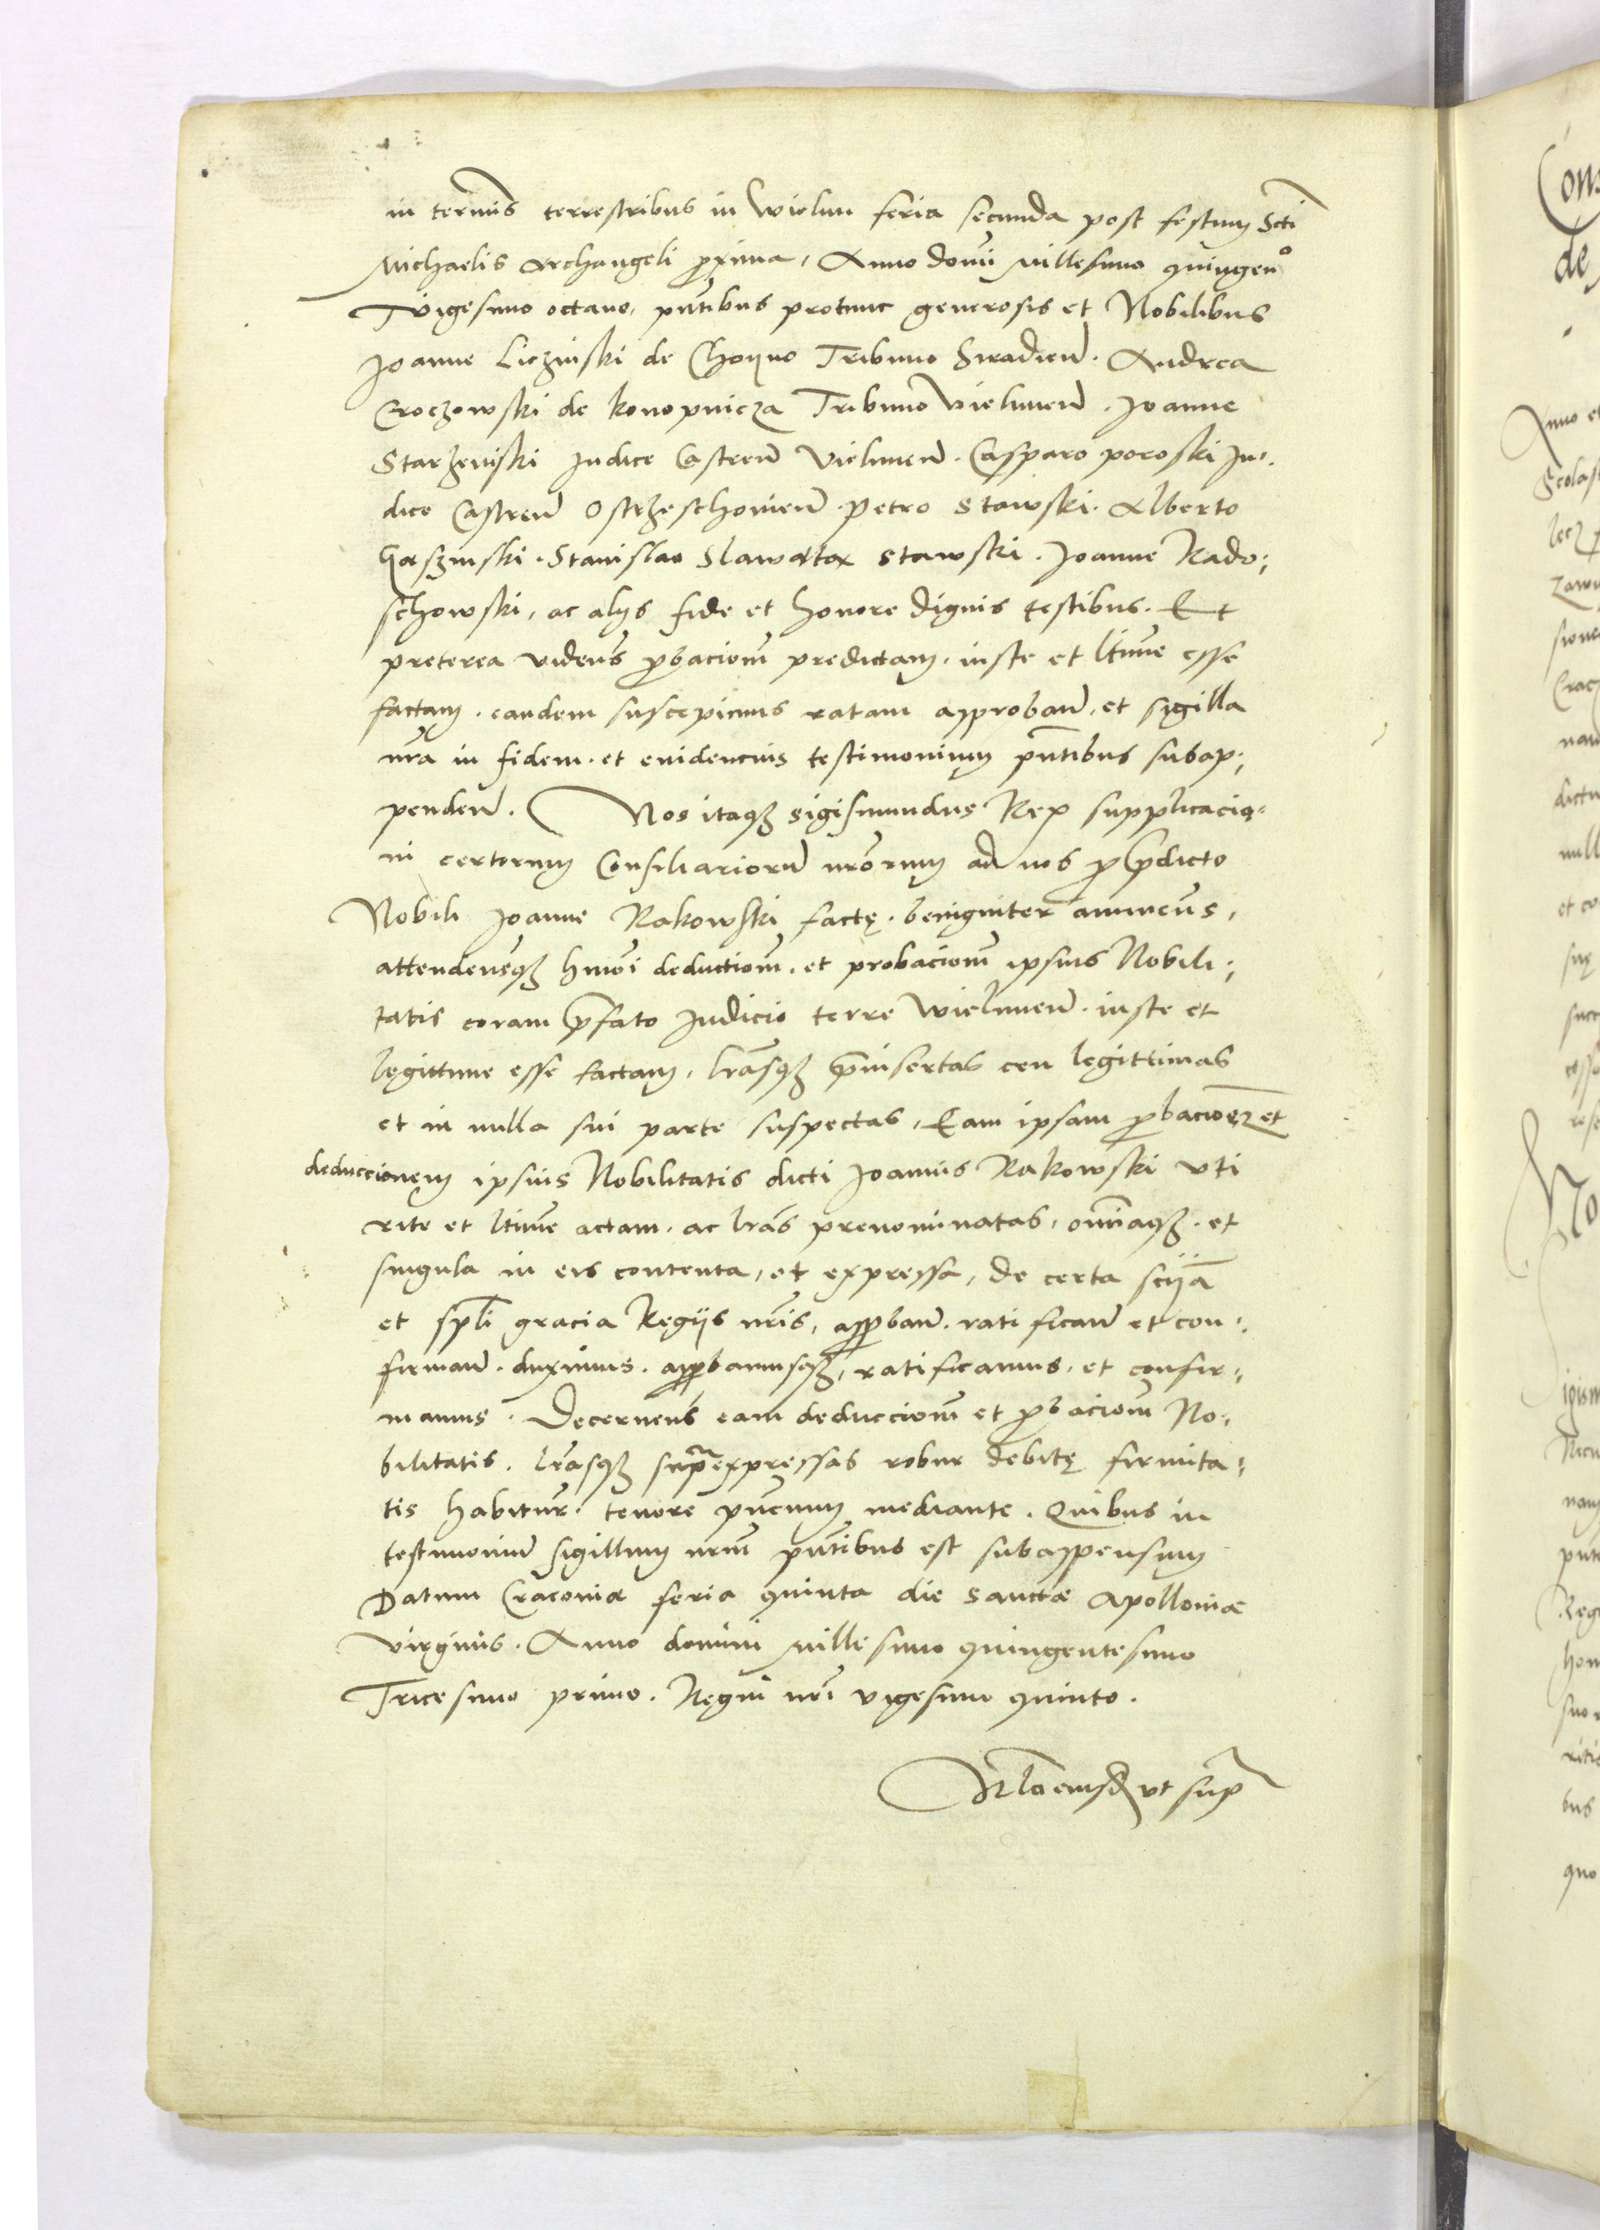 in termis terrestribus in Wielun feria secunda post festum Scti
Michaelis Archangeli proxima, Anno domi Millesimo quingen°
Vigesimo octavo, pntibus protunc generosis et Nobilibus
Joanne Liczinski de Choyno Tribuno Siradien. Andrea
Croczowski de Konopnicza Tribuno Vielunen. Joanne
Starzeniski Judice Castren Vielunen. Casparo poroski Ju-
dice Castren Ostrzeschovien. Petro Stawski. Alberto
Gaszinski. Stanislao Slawatha Stawski. Joanne Rado-
schowski, ac alys fide et honore dignis testibus. Et
preterea videns probaciom predictam. iuste et ltime esse
factam. eandem suscepimus ratam approban, et sigilla
nra in fidem. et evidencius testimonium pntibus subap-
penden. Nos itaq3 Sigismundus Rex supplicacio-
ni certorum Consiliarioru nrorum ad nos pro predicto
Nobili Joanne Rakowski factę. benigniter annuens,
attendensq3 hmoi deductiom. et probaciom ipsius Nobili-
tatis coram prefato Judicio terre Wielunen. iuste et
legittime esse factam, lrasq3 preinsertas ceu legittimas
et in nulla sui parte suspectas, Eam ipsam probacioem et
deduccionem ipsius Nobilitatis dicti Joannis Rakowski uti
rite et ltime actam. ac lras prenominatas, omiaq3. et
singula in eis contenta, et expressa, de certa scyia
et spli gracia Regiis nris, approban. ratifican et con-
firman. duximus. approbamusq3, ratificamus. et confir-
mamus. Decernens eam deducciom et probaciom No-
bilitatis. lrasq3 supra expressas robur debitę firmita-
tis habitur. tenore pncium mediante. Quibus in
testimoniu sigillum nrm pntibus est subappensum
Datum Cracoviæ feria quinta die sanctæ Apolloniæ
Virginis. Anno domini Millesimo quingentesimo
Tricesimo primo. Regni nri vigesimo quinto.
Rlo eiusd ut supra